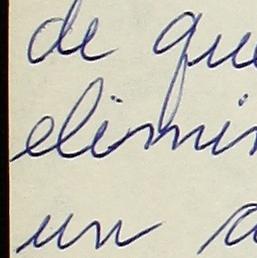 de que
elimin
un a